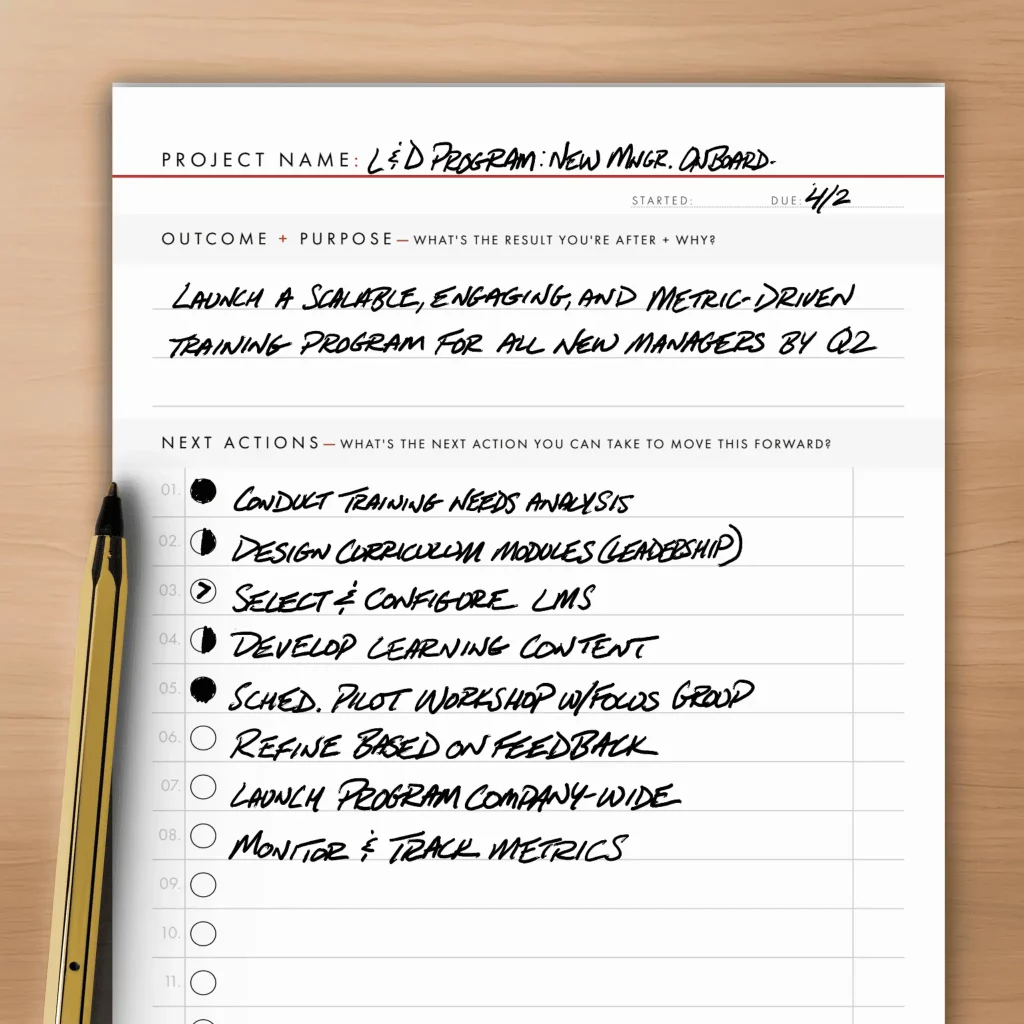 PROJECT NAME: L&D PROGRAM: NEW MNGR. ONBOARD.
STARTED: DUE: 4/2
OUTCOME + PURPOSE—WHAT'S THE RESULT YOU'RE AFTER + WHY?
LAUNCH A SCALABLE, ENGAGING, AND METRIC-DRIVEN
TRAINING PROGRAM FOR ALL NEW MANAGERS BY Q2
NEXT ACTIONS—WHAT'S THE NEXT ACTION YOU CAN TAKE TO MOVE THIS FORWARD?
01. CONDUCT TRAINING NEEDS ANALYSIS
02. DESIGN CURRICULUM MODULES (LEADERSHIP)
03. SELECT & CONFIGURE LMS
04. DEVELOP LEARNING CONTENT
05. SCHED. PILOT WORKSHOP W/FOCUS GROUP
06. REFINE BASED ON FEEDBACK
07. LAUNCH PROGRAM COMPANY-WIDE
08. MONITOR & TRACK METRICS
09.
10.
11.